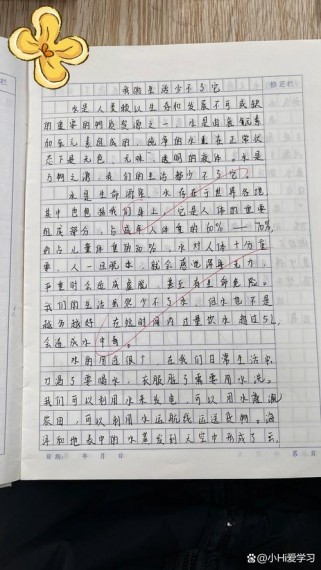 我的生活少不了它
修正栏
水是人类赖以生存和发展不可或缺
的重要的物质资源之一，水是由氢元素
和氧元素组成的，纯净的水在正常状
态下是无色、无味、透明的液体。水是
万物之源，我们的生活都少不了它。
水是生命源泉，水存在于世界各地，
其中包括在我们身上，它是人体的重要
组成部分，占成年人体重的60%—70%，
约占儿童体重的80%，水对人体十分重
要，人一旦脱水，就会感觉浑身无力，
严重时会造成虚脱，甚至有生命危险。
我们的生活虽然少不了水，但水也不是
越多越好，在短时间内过量饮水超过5L，
会造成水中毒。
水的用途很广，在我们日常生活中
口渴了要喝水，衣服脏了需要用水洗。
我们可以利用水来发电，可以用水灌溉
农田，可以利用水运航线运送货物。海
洋和地表中的水蒸发到天空中形成了云，
日期： 年 月 日
@小Hi爱学习